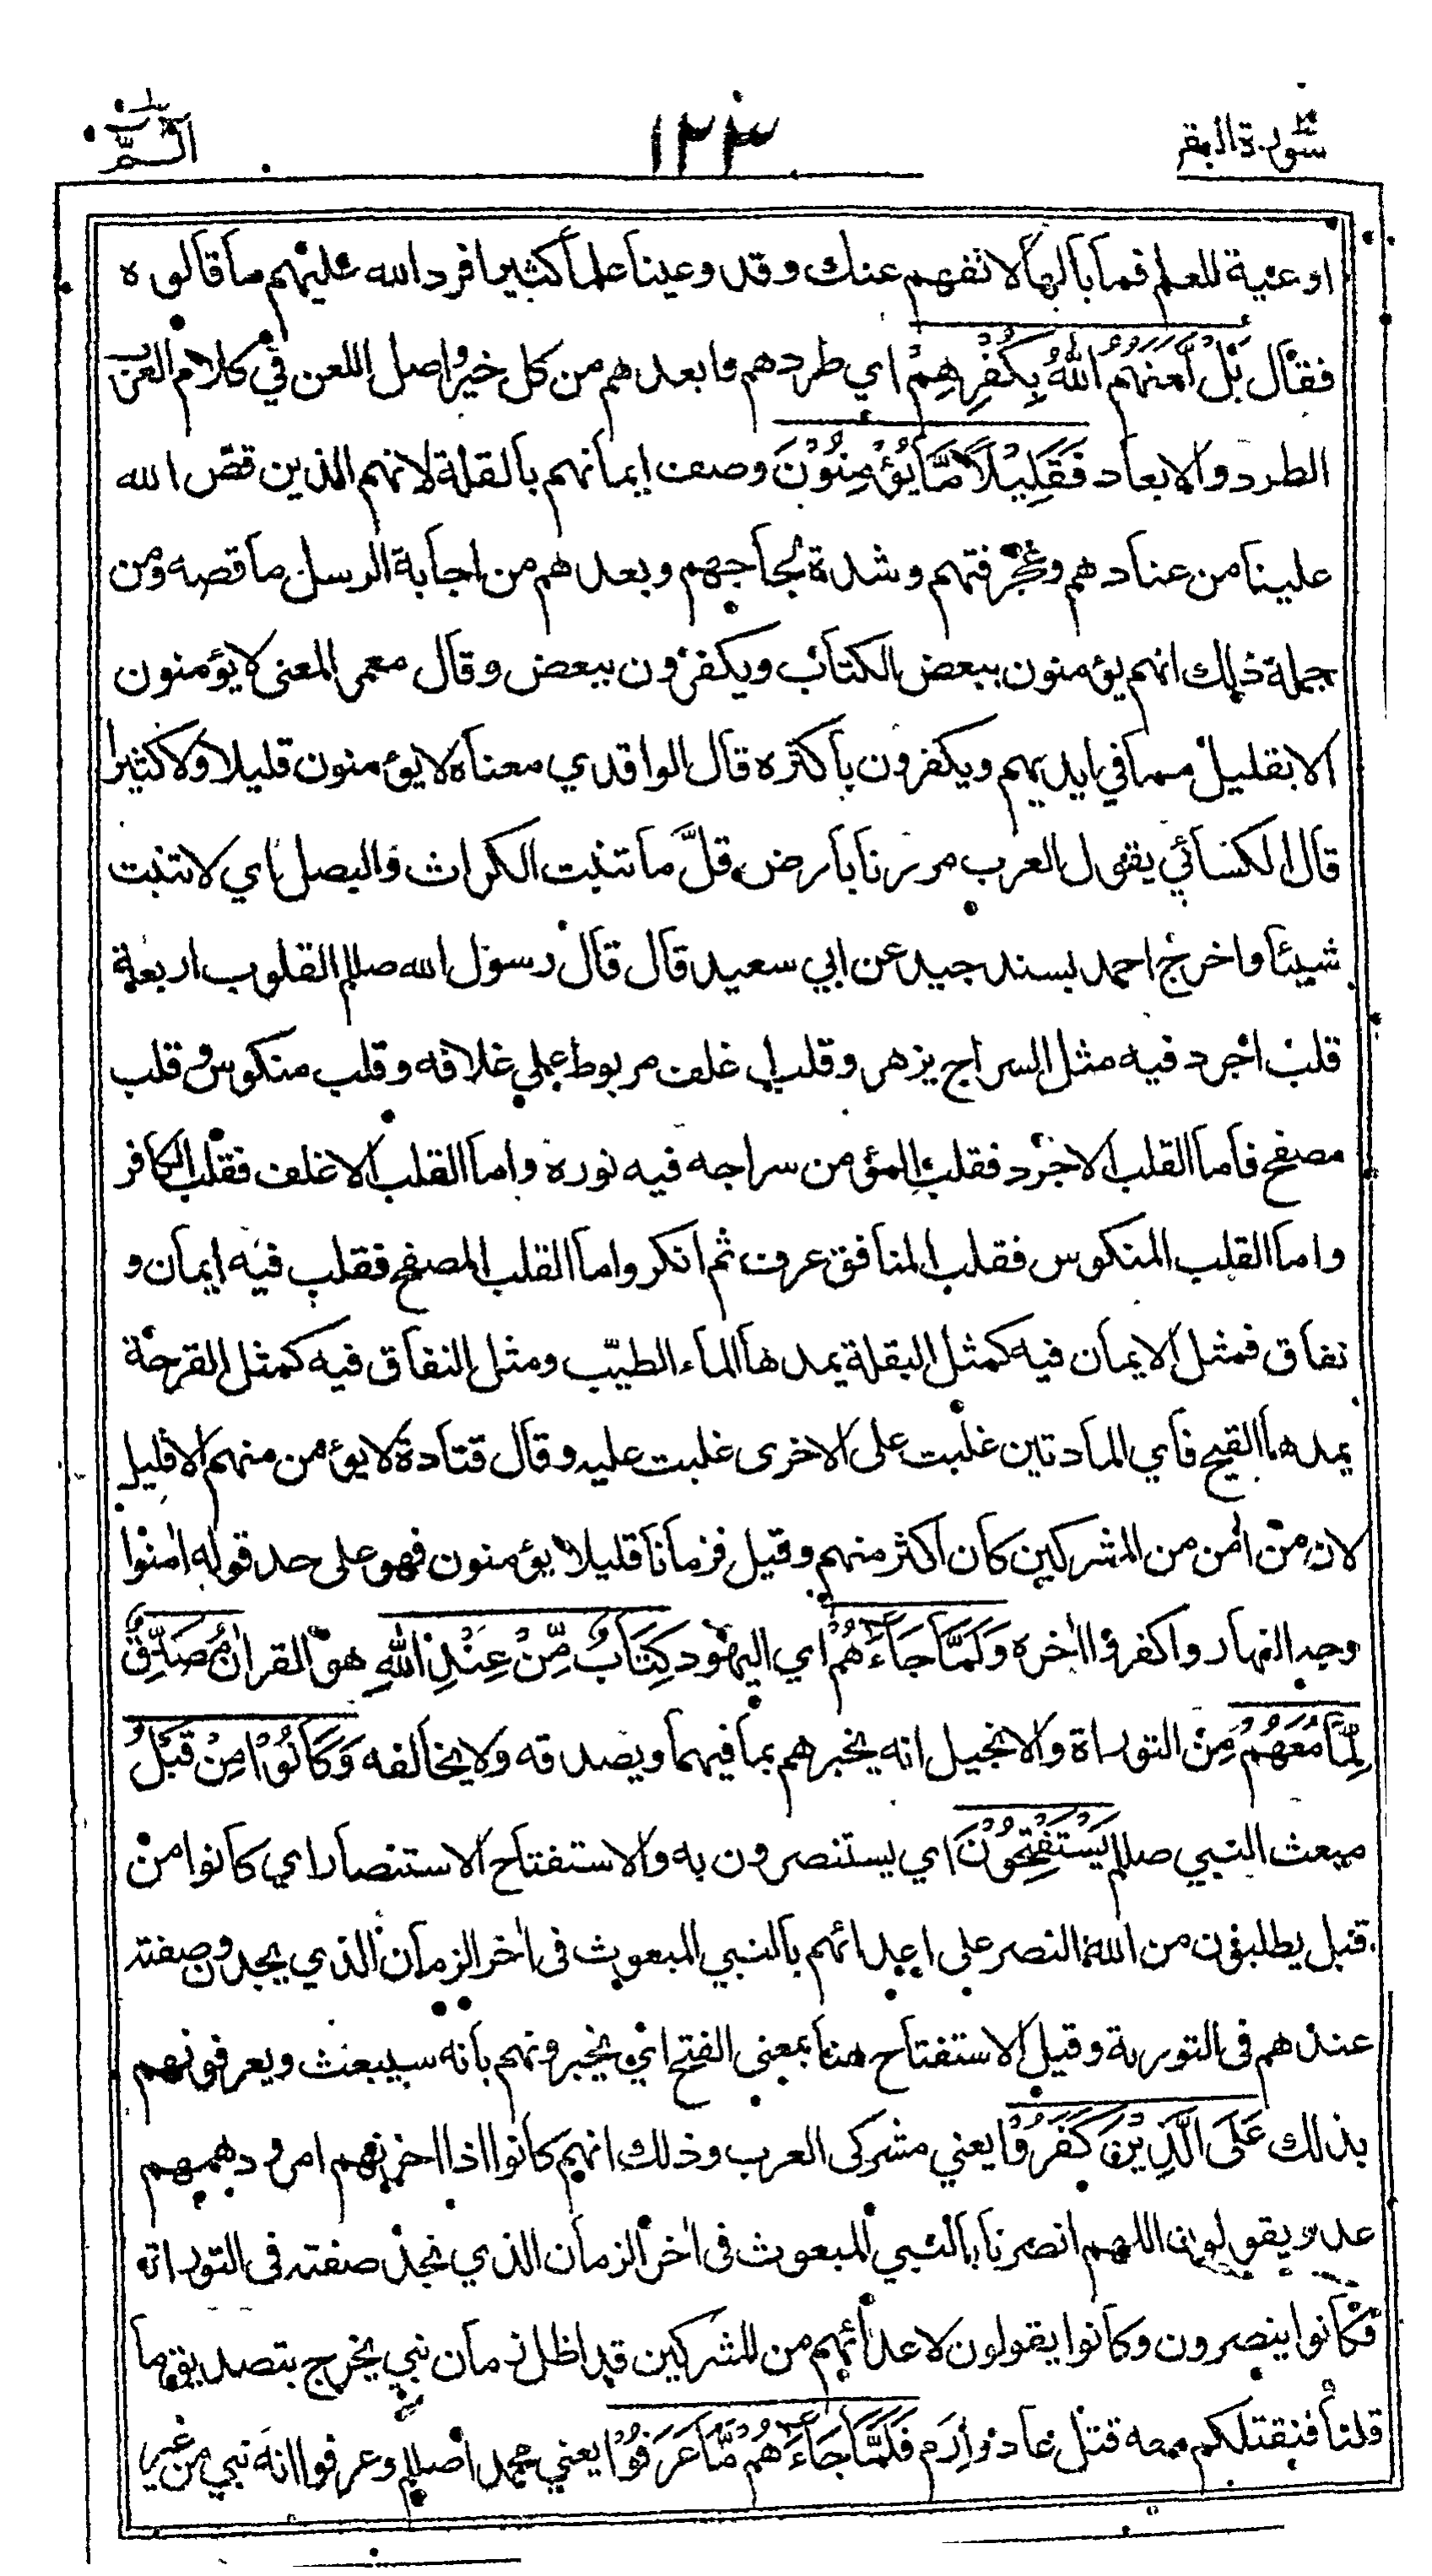 سورة البقر ١٢٣ الٓمّ
اوعية للعلم فما بالها لا تفهم عنك وقد وعينا علما كثيرا فرد الله عليهم ما قالوه
فقال بَلْ لَّعَنَهُمُ اللّٰهُ بِكُفْرِهِمْ اي طردهم وابعدهم من كل خير واصل اللعن في كلام العرب
الطرد والابعاد فَقَلِيْلًا مَّا يُؤْمِنُوْنَ وصف ايمانهم بالقلة لانهم الذين قص الله
علينا من عنادهم وعجرفتهم وشدة لجاجهم وبعدهم من اجابة الرسل ما قصه ومن
جملة ذلك انهم يؤمنون ببعض الكتاب ويكفرون ببعض وقال معمر المعنى لا يؤمنون
الا بقليل مما في ايديهم ويكفرون باكثره قال الواقدي معناه لا يؤمنون قليلا ولا كثيرا
قال الكسائي يقول العرب مررنا بارض قلّ ما تنبت الكراث والبصل اي لا تنبت
شيئا واخرج احمد بسند جيد عن ابي سعيد قال قال رسول الله صللم القلوب اربعة
قلب اجرد فيه مثل السراج يزهر وقلب اغلف مربوط على غلافه وقلب منكوس وقلب
مصفح فاما القلب الاجرد فقلب المؤمن سراجه فيه نوره واما القلب الاغلف فقلب الكافر
واما القلب المنكوس فقلب المنافق عرف ثم انكر واما القلب المصفح فقلب فيه ايمان و
نفاق فمثل الايمان فيه كمثل البقلة يمدها الماء الطيّب ومثل النفاق فيه كمثل القرحة
يمدها القيح فاي المادتين غلبت على الاخرى غلبت عليه وقال قتادة لا يؤمن منهم الا قليل
لان من اٰمن من المشركين كان اكثر منهم وقيل فزمانا قليلا يؤمنون فهو على حد قوله اٰمنوا
وجه النهار واكفروا اٰخره وَلَمَّا جَآءَهُمْ اي اليهود كِتَابٌ مِّنْ عِنْدِ اللّٰهِ هو القراٰن مُصَدِّقٌ
لِّمَا مَعَهُمْ مِن التوراة والانجيل انه يخبرهم بما فيهما ويصدقه ولا يخالفه وَكَانُوْا مِنْ قَبْلُ
مبعث النبي صللم يَسْتَفْتِحُوْنَ اي يستنصرون به والاستفتاح الاستنصار اي كانوا من
قبل يطلبون من الله النصر على اعدائهم بالنبي المبعوث فى اٰخر الزمان الذي يجدون صفته
عندهم فى التورية وقيل الاستفتاح هنا بمعنى الفتح اي يخبرونهم بانه سيبعث ويعرفونهم
بذلك عَلَى الَّذِيْنَ كَفَرُوْا يعني مشركى العرب وذلك انهم كانوا اذا احزنهم امر ودهمهم
عدو يقولون اللهم انصرنا بالنبي المبعوث فى اٰخر الزمان الذي نجد صفته فى التوراته
فكانوا ينصرون وكانوا يقولون لاعدائهم من المشركين قد اظل زمان نبي يخرج بتصديق ما
قلنا فنقتلكم معه قتل عاد وارم فَلَمَّا جَآءَهُمْ مَّا عَرَفُوْا يعني محمدا صللم وعرفوا انه نبي من غير